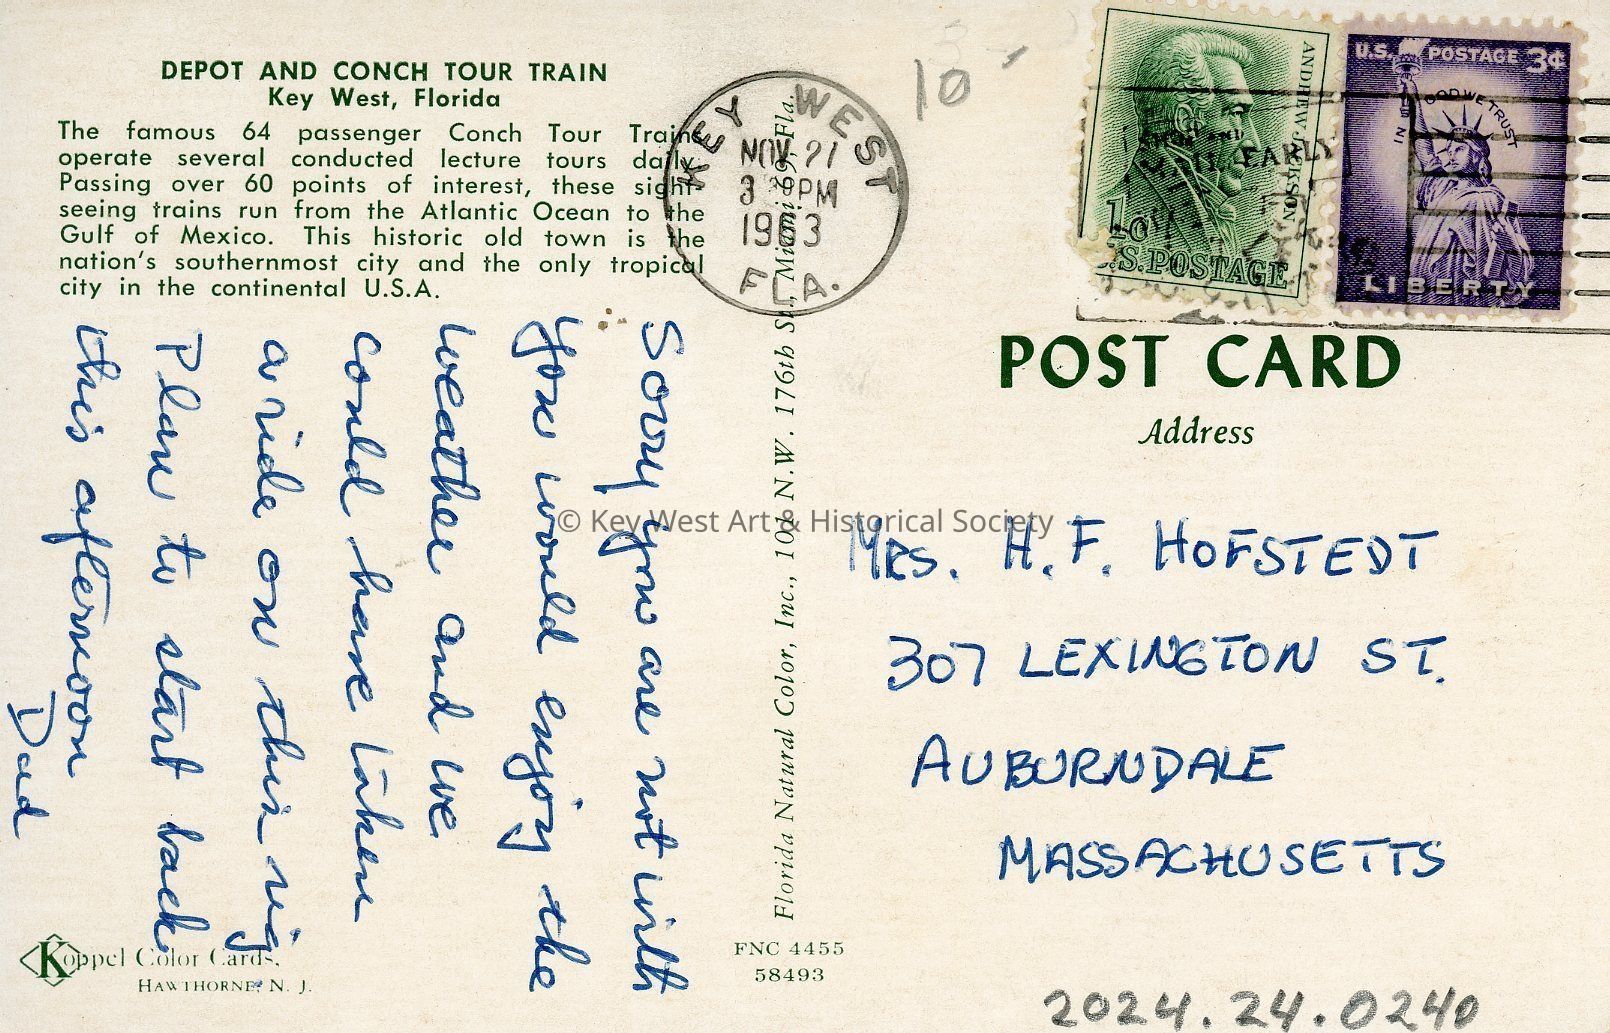 DEPOT AND CONCH TOUR TRAIN
Key West, Florida
The famous 64 passenger Conch Tour Trains
operate several conducted lecture tours daily.
Passing over 60 points of interest, these sight-
seeing trains run from the Atlantic Ocean to the
Gulf of Mexico. This historic old town is the
nation's southernmost city and the only tropical
city in the continental U.S.A.
Sorry you are not with
you would enjoy the
weather and we
could have taken
a ride on this rig
Plan to start back
this afternoon
Dad
Koppel Color Cards,
HAWTHORNE, N. J.
KEY WEST
NOV 21
3 PM
1963
FLA.
Florida Natural Color, Inc., 101 N.W. 176th St., Miami 69, Fla.
FNC 4455
58493
10
ANDREW JACKSON
1¢
U.S. POSTAGE
U.S. POSTAGE 3¢
IN GOD WE TRUST
LIBERTY
EARLY
POST CARD
Address
MRS. H. F. HOFSTEDT
307 LEXINGTON ST.
AUBURNDALE
MASSACHUSETTS
2024.24.0240
© Key West Art & Historical Society